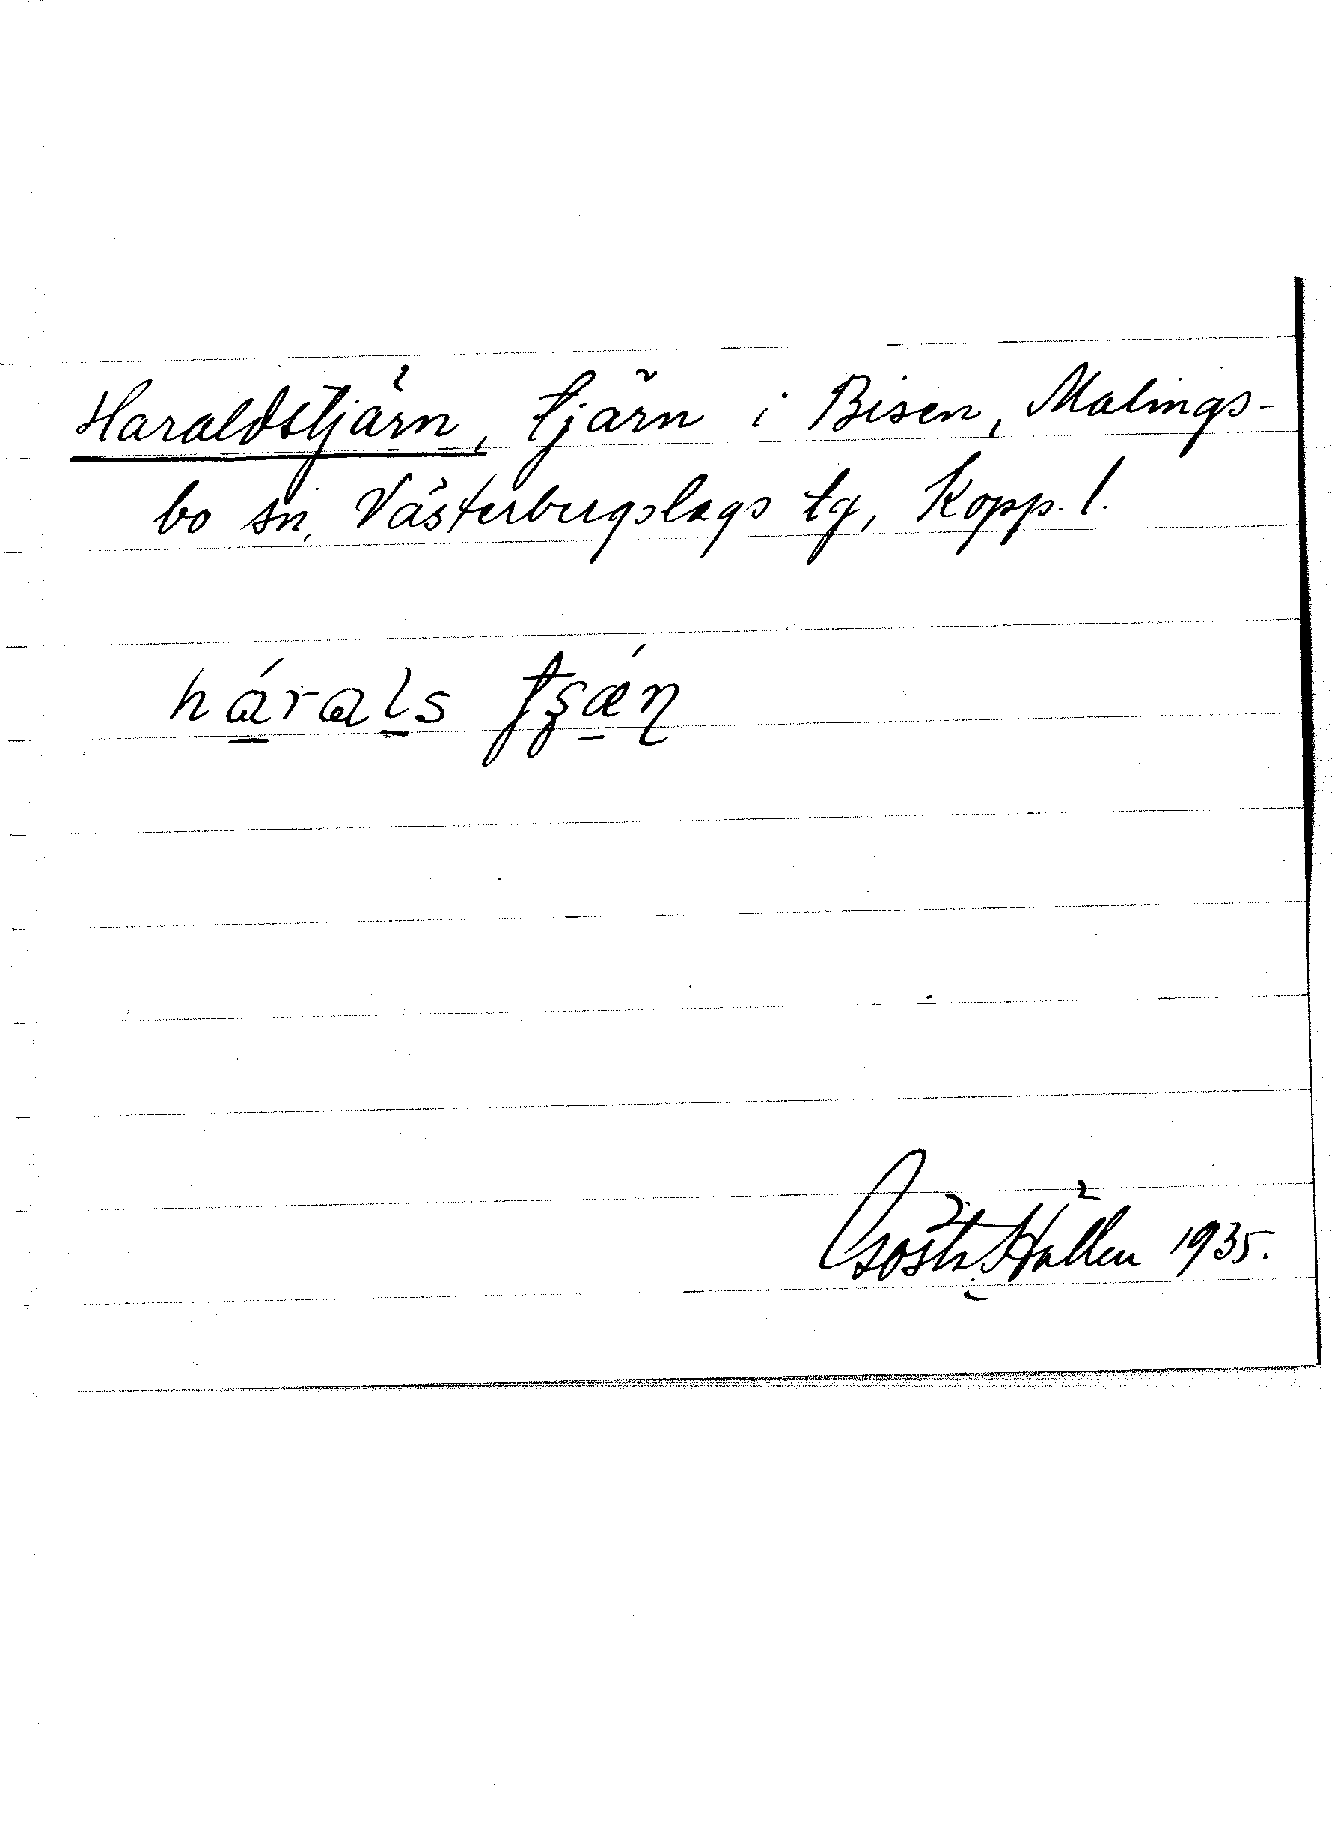 Haraldstjärn, tjärn i Bisen, Malings-
bo sn, Västerbergslags tg, Kopp. l.
hárals tʂǽn
Gösta Hállen 1935.